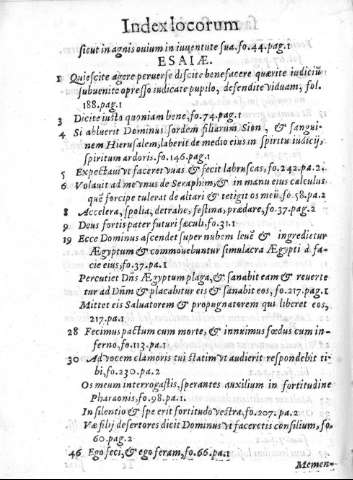 Index locorum
sicut in agnis ouium in iuuentute sua. fo. 44. pag. 1
ESAIÆ.
1 Quiescite agere peruerse discite benefacere quærite iudiciũ
subuenite opresso iudicate pupilo, defendite viduam, fol.
188. pag. 1
3 Dicite iusto quoniam bene, fo. 74. pag. 1
4 Si abluerit Dominus sordem filiarum Sion, & sangui-
nem Hierusalem, laberit de medio eius in spiritu iudicij,
spiritum ardoris. fo. 146. pag. 1
5 Expectaui vt faceret vuas & fecit labruscas, fo. 242. pa. 2.
6 Volauit ad me vnus de Seraphim, & in manu eius calculus
quẽ forcipe tulerat de altari & tetigit os meũ, fo. 58. pa. 2
8 Accelera, spolia, detrahe, festina, prædare, fo. 37. pag. 2
9 Deus fortis pater futuri sæculi. fo. 31. 1
19 Ecce Dominus ascendet super nubem leuẽ & ingredietur
Ægyptum & commouebuntur simulacra Ægypti à fa-
cie eius, fo. 37. pa. 1
Percutiet Dñs Ægyptum plaga, & sanabit eam & reuerte
tur ad Dñm & placabitur eis & sanabit eos, fo. 217. pag. 1
Mittet eis Saluatorem & propugnatorem qui liberet eos,
217. pa. 1
28 Fecimus pactum cum morte, & inniximus fœdus cum in-
ferno, fo. 113. pa. 1
30 Ad vocem clamoris tui statim vt audierit respondebit ti-
bi, fo. 230. pa. 2
Os meum interrogastis, sperantes auxilium in fortitudine
Pharaonis, fo. 98. pa. 1.
In silentio & spe erit fortitudo vestra. fo. 207. pa. 2
Væ filij desertores dicit Dominus vt faceretis consilium, fo.
60. pag. 2
46 Ego feci, & ego feram, fo. 66. pa. 1
Memen-